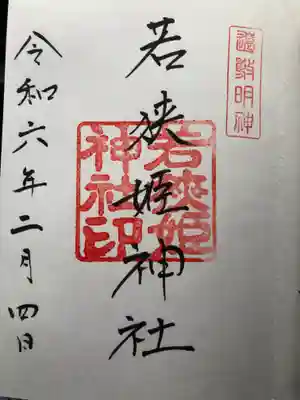 遠敷明神
若狭姫神社
若狹姫
神社印
令和六年二月四日